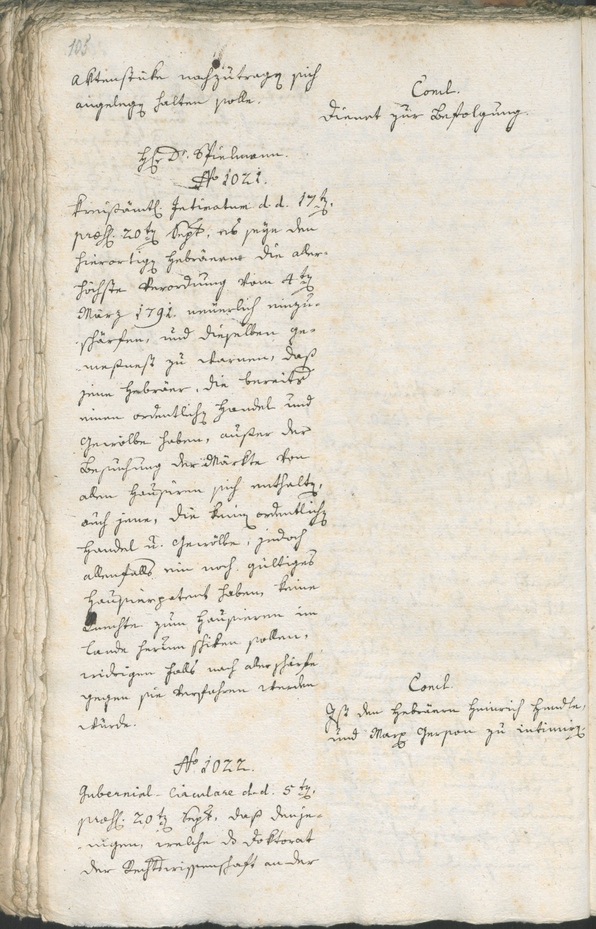 105
Aktenstüke nachzutragen sich
angelegen halten solle.
Concl.
Dienet zur Befolgung.
H. Dr. Spielmann.
No 1021.
Kreisämtl. Intimatum d. d. 17ten,
præs. 20ten Sept., es seye den
hierortigen Hebräern die aller-
höchste Verordnung vom 4ten
März 1791 neuerlich einzu-
schärfen, und dieselben ge-
messenst zu warnen, daß
jene Hebräer, die bereits
einen ordentlichen Handel und
Gewölbe haben, außer der
Besuchung der Märkte von
allen Hausiren sich enthalten,
auch jene, die keinen ordentlichen
Handel u. Gewölbe, jedoch
allenfalls ein noch gültiges
Hausierpatent haben, keine
Knechte zum Hausieren im
Lande herum schiken sollen,
widrigen falls nach aller schärfe
gegen sie verfahren werden
würde.
Concl.
Ist den Hebräern Heinrich Hendle,
und Marx Gerson zu intimiren.
No 1022.
Gubernial-Circulare d. d. 5ten,
præs. 20ten Sept., daß dieje-
nigen, welche das Doktorat
der Rechtswissenschaft an der